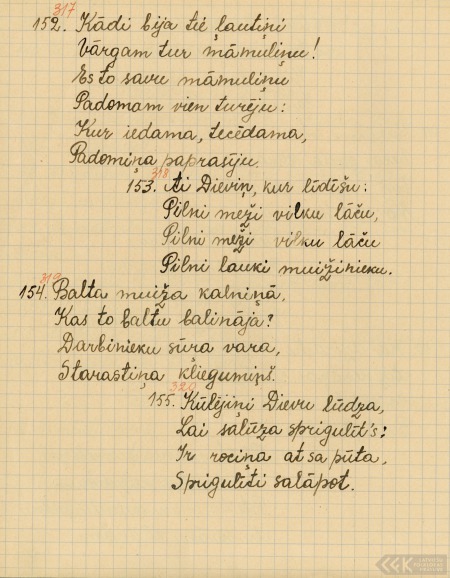 317
152. Kādi bija tie ļautiņi
Vārgam tur māmuliņu!
Es to savu māmuliņu
Padomam vien turēju:
Kur iedama, tecēdama,
Padomiņa paprasīju.
318
153. Ai Dieviņ, kur līdīšu:
Pilni meži vilku lāču,
Pilni meži vilku lāču
Pilni lauki muižinieku.
319
154. Balta muiža kalniņā,
Kas to baltu balināja?
Darbinieku sūra vara,
Starastiņa kļiegumiņš.
320
155. Kūlējiņi Dievu lūdza,
Lai saļūza sprigulīt's:
Ir rociņa at sa pūta,
Sprigulīti salāpot.